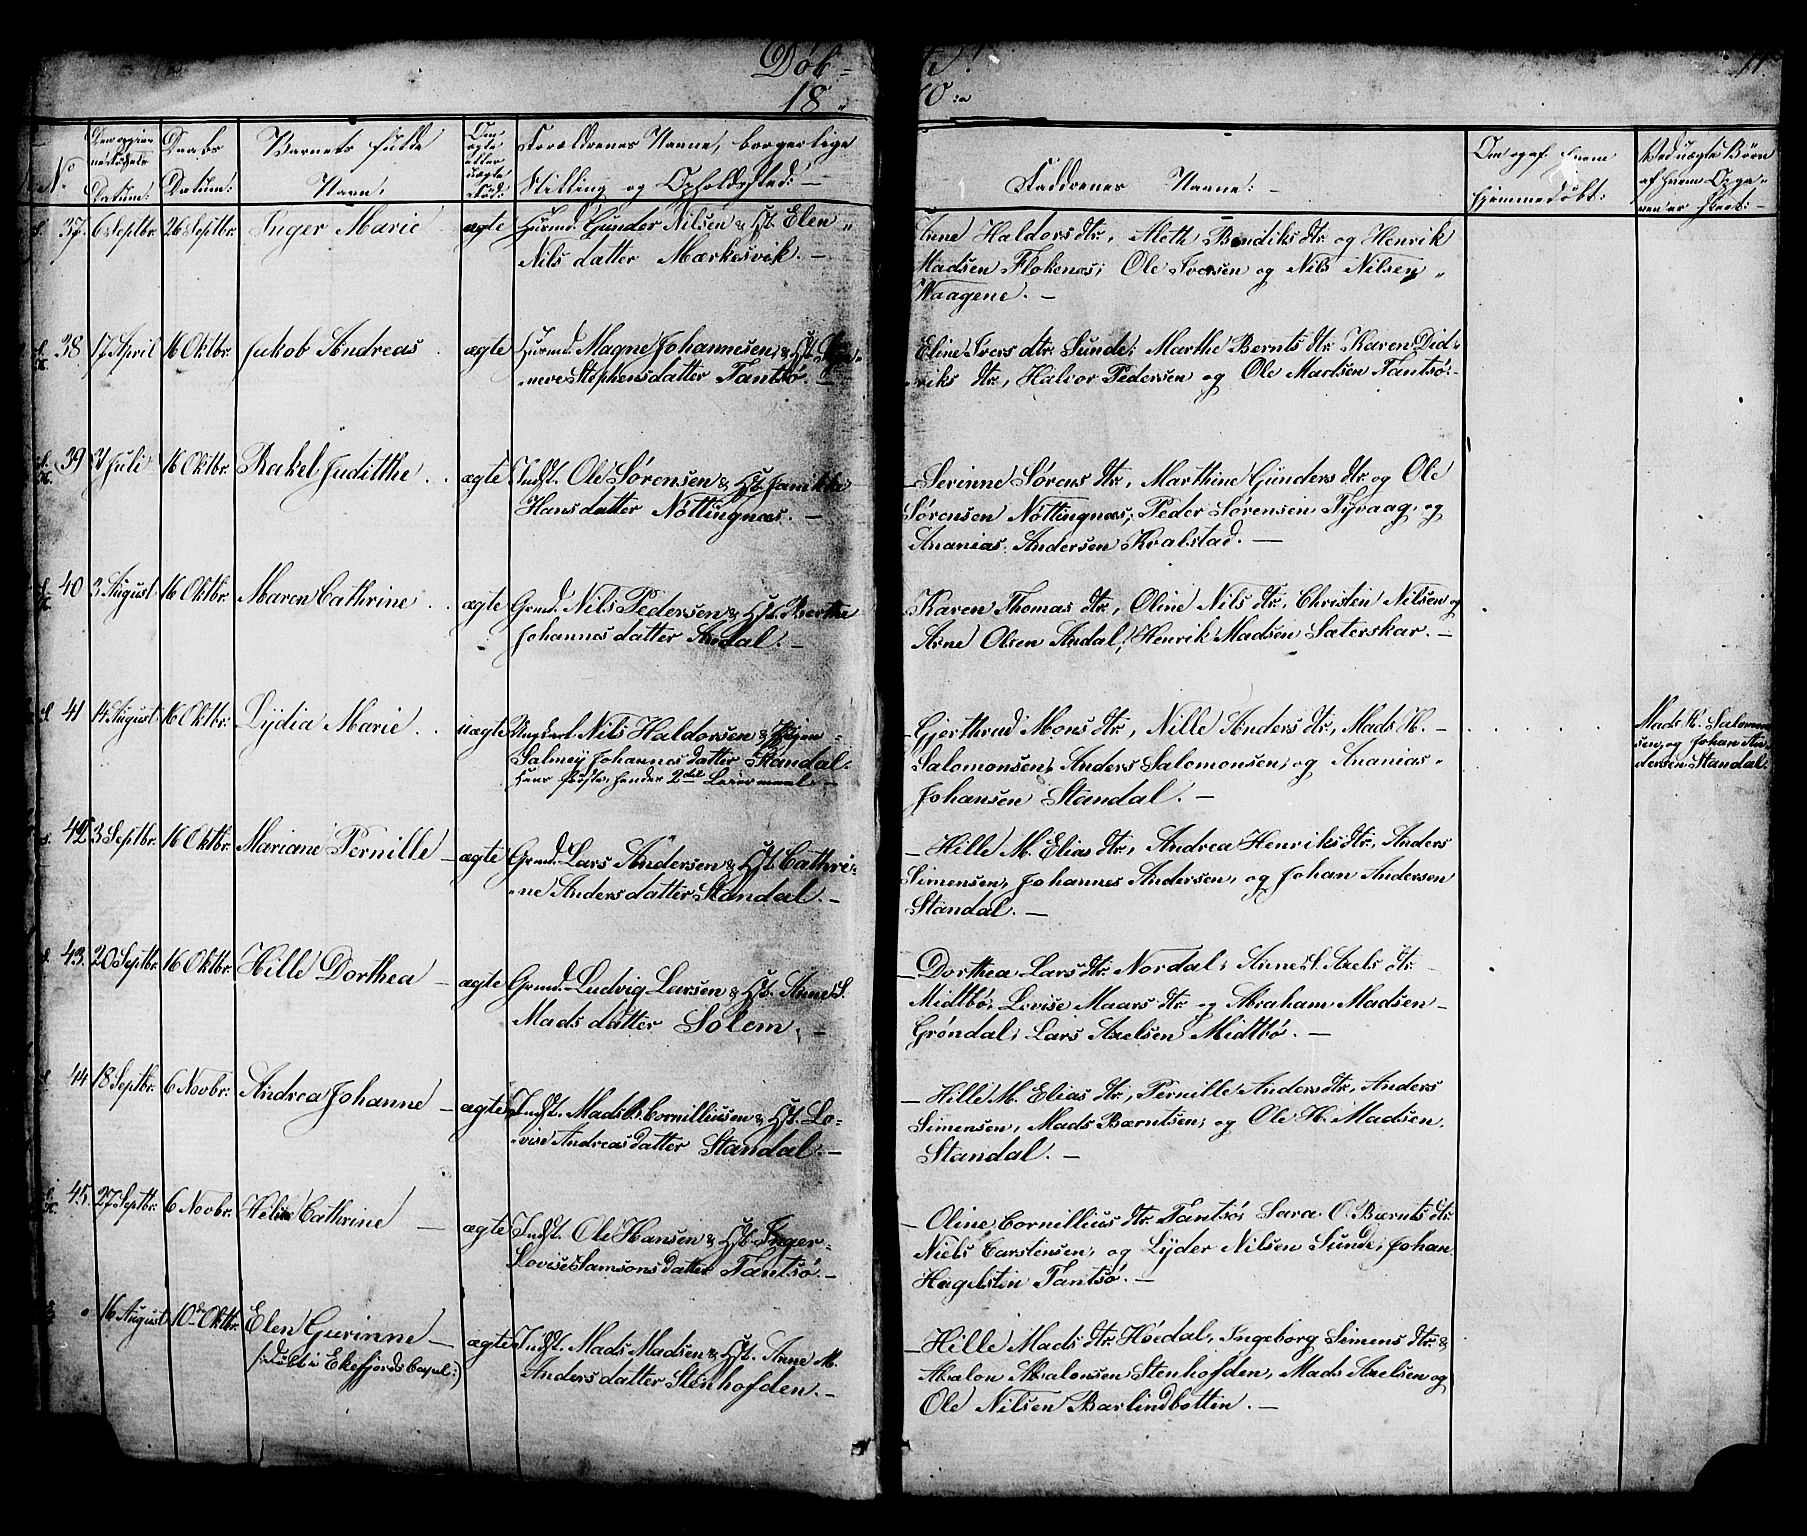 Døb-
18
11
No.
Daabs
Datum:
Barnets fulde
Navn:
Om
ægte
eller
uægte
Fød:
Forældrenes Navne, borgerlige
Stilling og Opholdssted: —
Faddrenes Navne: —
Om og af hvem
hjemmedøbt:
Ved uægte Børn
af hvem Opga-
ven er skeet: —
37. 6 Septbr. 26 Septbr. Inger Marie ægte Huusmd. Gunder Nilsen & Hst. Elen
Nils datter Mærkesvik. —
Anne Haldors dtr., Aleth Bendiks dtr. og Henrik
Madsen Flokenæs; Ole Iversen og Nils Nilsen
Waagene. —
38. 17 April 16 Oktbr. Jakob Andreas ægte Huusmd. Magne Johannesen, & Hst.
Stephens datter Tantsø. —
Eline Ivers dtr. Sunde; Marthe Bernts dtr. Karen Did-
riks dtr., Halvor Pedersen og Ole Madsen Tantsø. —
39 Juli 16 Oktbr. Rakel Juditthe ægte Indst. Ole Sørensen & Hst. Janikke
Hans datter Nøttingnæs. —
Serinne Sørens dtr., Marthine Gunders dtr. og Ole
Sørensen Nøttingnæs; Peder Sørensen Tyvaag, og
Ananias Andersen Kvalstad. —
40 3 August 16 Oktbr. Maren Cathrine ægte Grmd. Nils Pedersen & Hst. Berthe
Johannes datter Andal. —
Karen Thomas dtr., Oline Nils dtr., Christen Nilsen og
Arne Olsen Andal, Henrik Madsen Sæterskar. —
41 14 August 16 Oktbr. Lydia Marie uægte Ungkarl Nils Haldorsen & Pigen
Salmey Johannes datter Standal.
2det Leiermaal —
Gjerthrud Mons dtr., Nille Anders dtr., Mads H.
Salomonsen, Anders Salomonsen, og Ananias
Johansen Standal. —
Mads H. Salomon-
sen, og Johan An-
dersen Standal.
42 3 Septbr. 16 Oktbr. Mariane Pernille — ægte Grmd. Lars Andersen & Hst. Cathri-
ne Anders datter Standal. —
— Hille M. Elias dtr., Andrea Henriks dtr., Anders
Simensen, Johannes Andersen, og Johan Andersen
Standal. —
43. 20 Septbr. 16 Oktbr. Hille Dorthea — ægte Grmd. Ludvig Larsen & Hst. Anne S.
Mads datter Solem, —
— Dorthea Lars dtr. Nordal, Anne L. Axels dtr.
Midtbø, Lovise Maars dtr. og Abraham Madsen
Grøndal, Lars Axelsen Midtbø. —
44 18 Septbr. 6 Novbr. Andrea Johanne — ægte Indst. Mads B. Cornilliusen & Hst. Lo-
vise Andreas datter Standal. —
— Hille M. Elias dtr., Pernille Anders dtr., Anders
Simensen, Mads Bærntsen, og Ole H. Madsen,
Standal. —
45. 27 Septbr. 6 Novbr. Cathrine — ægte Indst. Ole Hansen & Hst. Inger
Lovise Samsons datter Tantsø. —
— Oline Cornillius dtr. Tantsø, Sara O. Bærnts dtr.
Niels Carstensen, og Lyder Nilsen Sunde, Johan
Hagelstin Tantsø. —
16 August 10de Oktbr. Elen Gurinne — ægte Indst. Mads Madsen & Hst. Anne M.
(:Døbt i Ekefjords Capel:)
Anders datter Stenhofden. —
— Hille Mads dtr. Høedal, Ingeborg Simens dtr. &
Abalon Abalonsen Stenhofden, Mads Axelsen og
Ole Nilsen Barlindbotten. —